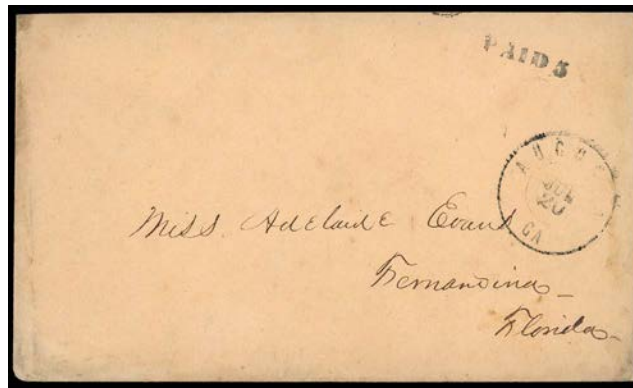 PAID 5
AUGU
JUL
20
GA
Miss Adelaide Evans
Fernandina
Florida